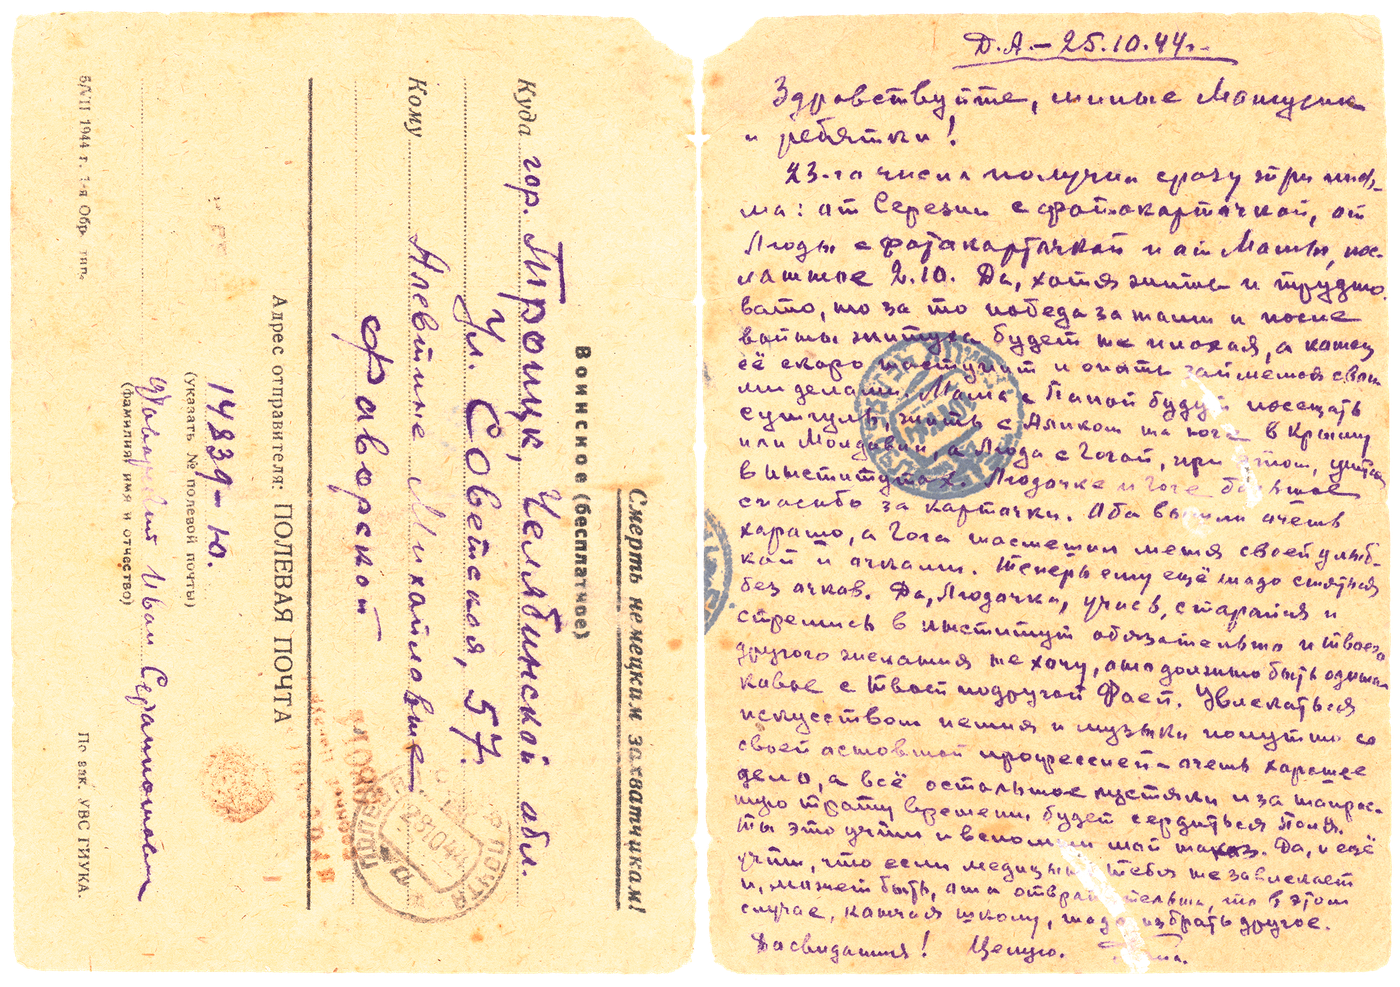 Смерть немецким захватчикам!
Воинское (бесплатное)
Куда гор. Троицк, Челябинской обл.
Ул. Советская, 57.
Кому Алевтине Михайловне
Фаворской
Адрес отправителя: ПОЛЕВАЯ ПОЧТА
14839-Ю.
(указать № полевой почты)
Фаворский Иван
(фамилия, имя и отчество)
5/VII 1944 г. 1-я Обр. тип.
По зак. УВС ГИУКА.
ПОЧТА
29 10 44
Д.А. – 25.10.44 г.
Здравствуйте, милые Мамусик
и ребятки!
23-го числа получил сразу три пись-
ма: от Сережи с фотокарточкой, от
Люды с фотокарточкой и от Мамы, пос-
ланное 2.10. Да, хотя жить и трудно-
вато, но за то победа за нами и после
войны житуха будет не плохая, а конец
её скоро наступит и опять займемся свои-
ми делами. Мама с Папой будут посещать
жить с Аликом на юге в Крыму
или Молдавии, а Люда с Гогой, при этом, учиться
в институтах. Людочке и Гоге большое
спасибо за карточки. Оба вышли очень
хорошо, а Гога насмешил меня своей улыб-
кой и очками. Теперь ему ещё надо сняться
без очков. Да, Людочка, учись, старайся и
стремись в институт обязательно и твоего
другого желания не хочу, оно должно быть одина-
ковое с твоей подругой Фаей. Увлекаться
искусством пения и музыки попутно со
своей основной профессией – очень хорошее
дело, а всё остальное пустяки и за напрас-
ную трату времени будет сердиться Папа.
Ты это учти и вспомни мой наказ. Да, и ещё
учти, что если медицина тебя не завлекает
и, может быть, она отвратительна, то в этом
случае, кончая школу, надо избрать другое.
Досвидания! Целую.